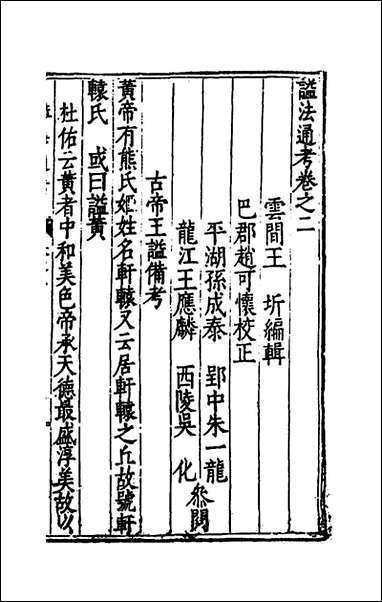 諡法通考卷之二
雲間王 圻編輯
巴郡趙可懷校正
平湖孫成泰 郢中朱一龍
龍江王應麟 西陵吳 化
叅閱
古帝王諡備考
黃帝有熊氏姬姓名軒轅又云居軒轅之丘故號軒
轅氏 或曰諡黃
杜佑云黃者中和美色帝承天德最盛淳美故以